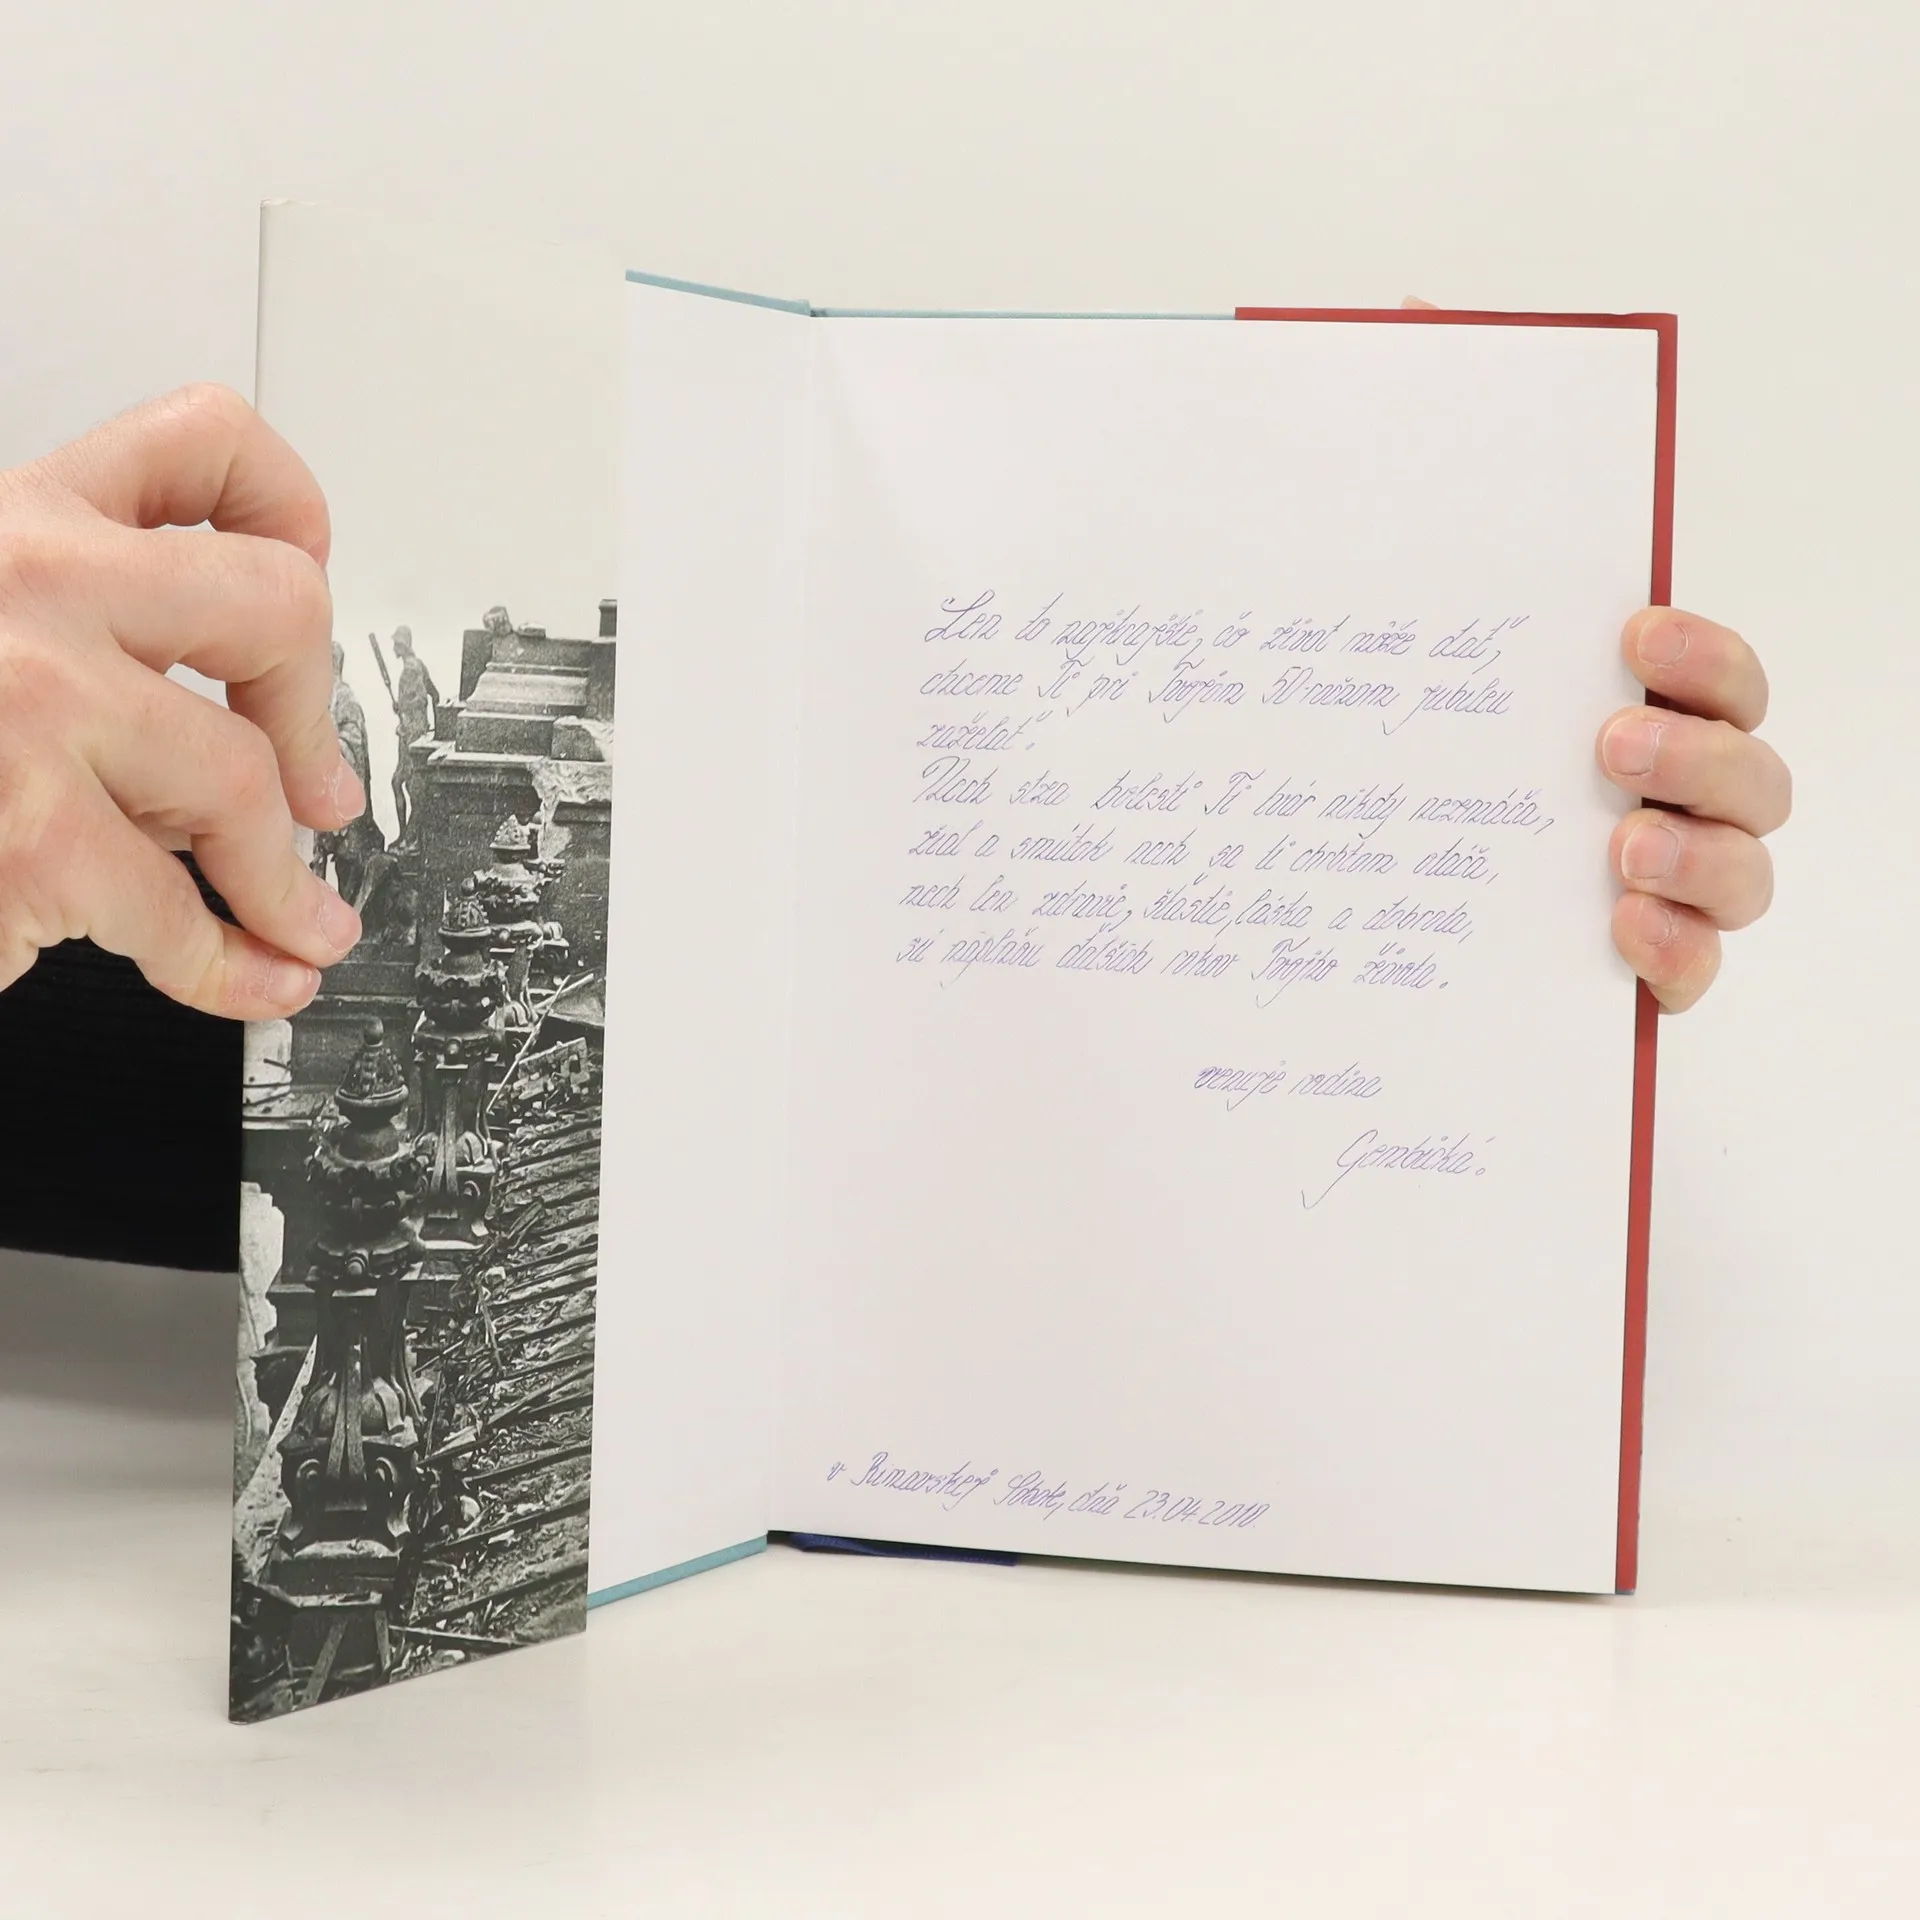 "Len to najkrajšie, čo život môže dať,
chceme Ti pri Tvojom 50-ročnom jubileu
zaželať".
Nech slza bolesti Ti tvár nikdy nezmáča,
žiaľ a smútok nech sa ti chrbtom otáča,
nech len zdravie, šťastie, láska a dobrota,
sú náplňou ďalších rokov Tvojho života.
venuje rodina
Gembická.
v Rimavskej Sobote, dňa 23.04.2010.